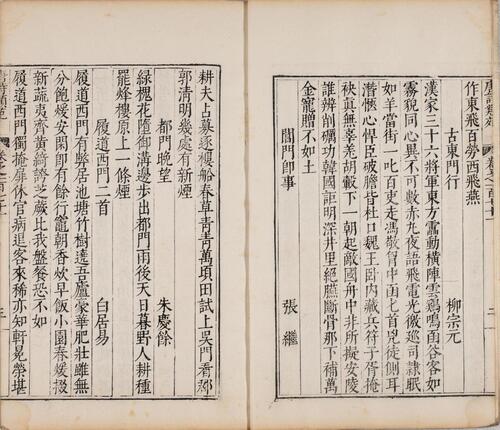 作東飛百勞西飛燕
古東門行　柳宗元
漢家三十六將軍東方靁動橫陣雲鷄鳴函谷客如
霧貌同心異不可數赤丸夜語飛電光徼巡司隷眠
如羊當街一叱百吏走馮敬胷中函匕首兇徒側耳
潛愜心悍臣破膽皆杜口魏王臥內藏兵符子胥掩
袂眞無辜羌胡轂下一朝起敵國舟中非所擬安陵
誰辨削礪功韓國詎明深井里絕臙斷骨那下補萬
金寵贈不如土
閶門即事　張繼
耕夫占募逐樓船春草青青萬頃田試上吳門看郡
郭清明幾處有新煙
都門晚望　朱慶餘
綠槐花墮御溝邊步出都門雨後天日暮野人耕種
罷烽樓原上一條煙
履道西門二首　白居易
履道西門有弊居池塘竹樹遶吾廬豪華肥壯雖無
分飽煖安閑即有餘行竈朝香炊早飯小園春煖掇
新蔬夷齊黃綺誇芝蕨比我盤餐恐不如
履道西門獨掩扉休官病退客來稀亦知軒冕榮堪